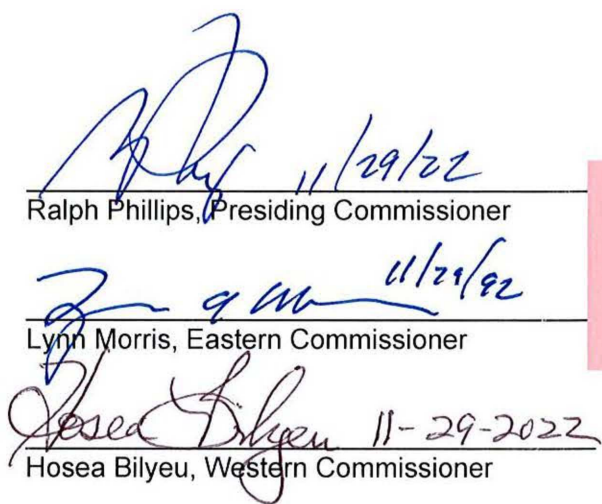 11/29/22
Ralph Phillips, Presiding Commissioner
11/29/22
Lynn Morris, Eastern Commissioner
Hosea Bilyeu 11-29-2022
Hosea Bilyeu, Western Commissioner